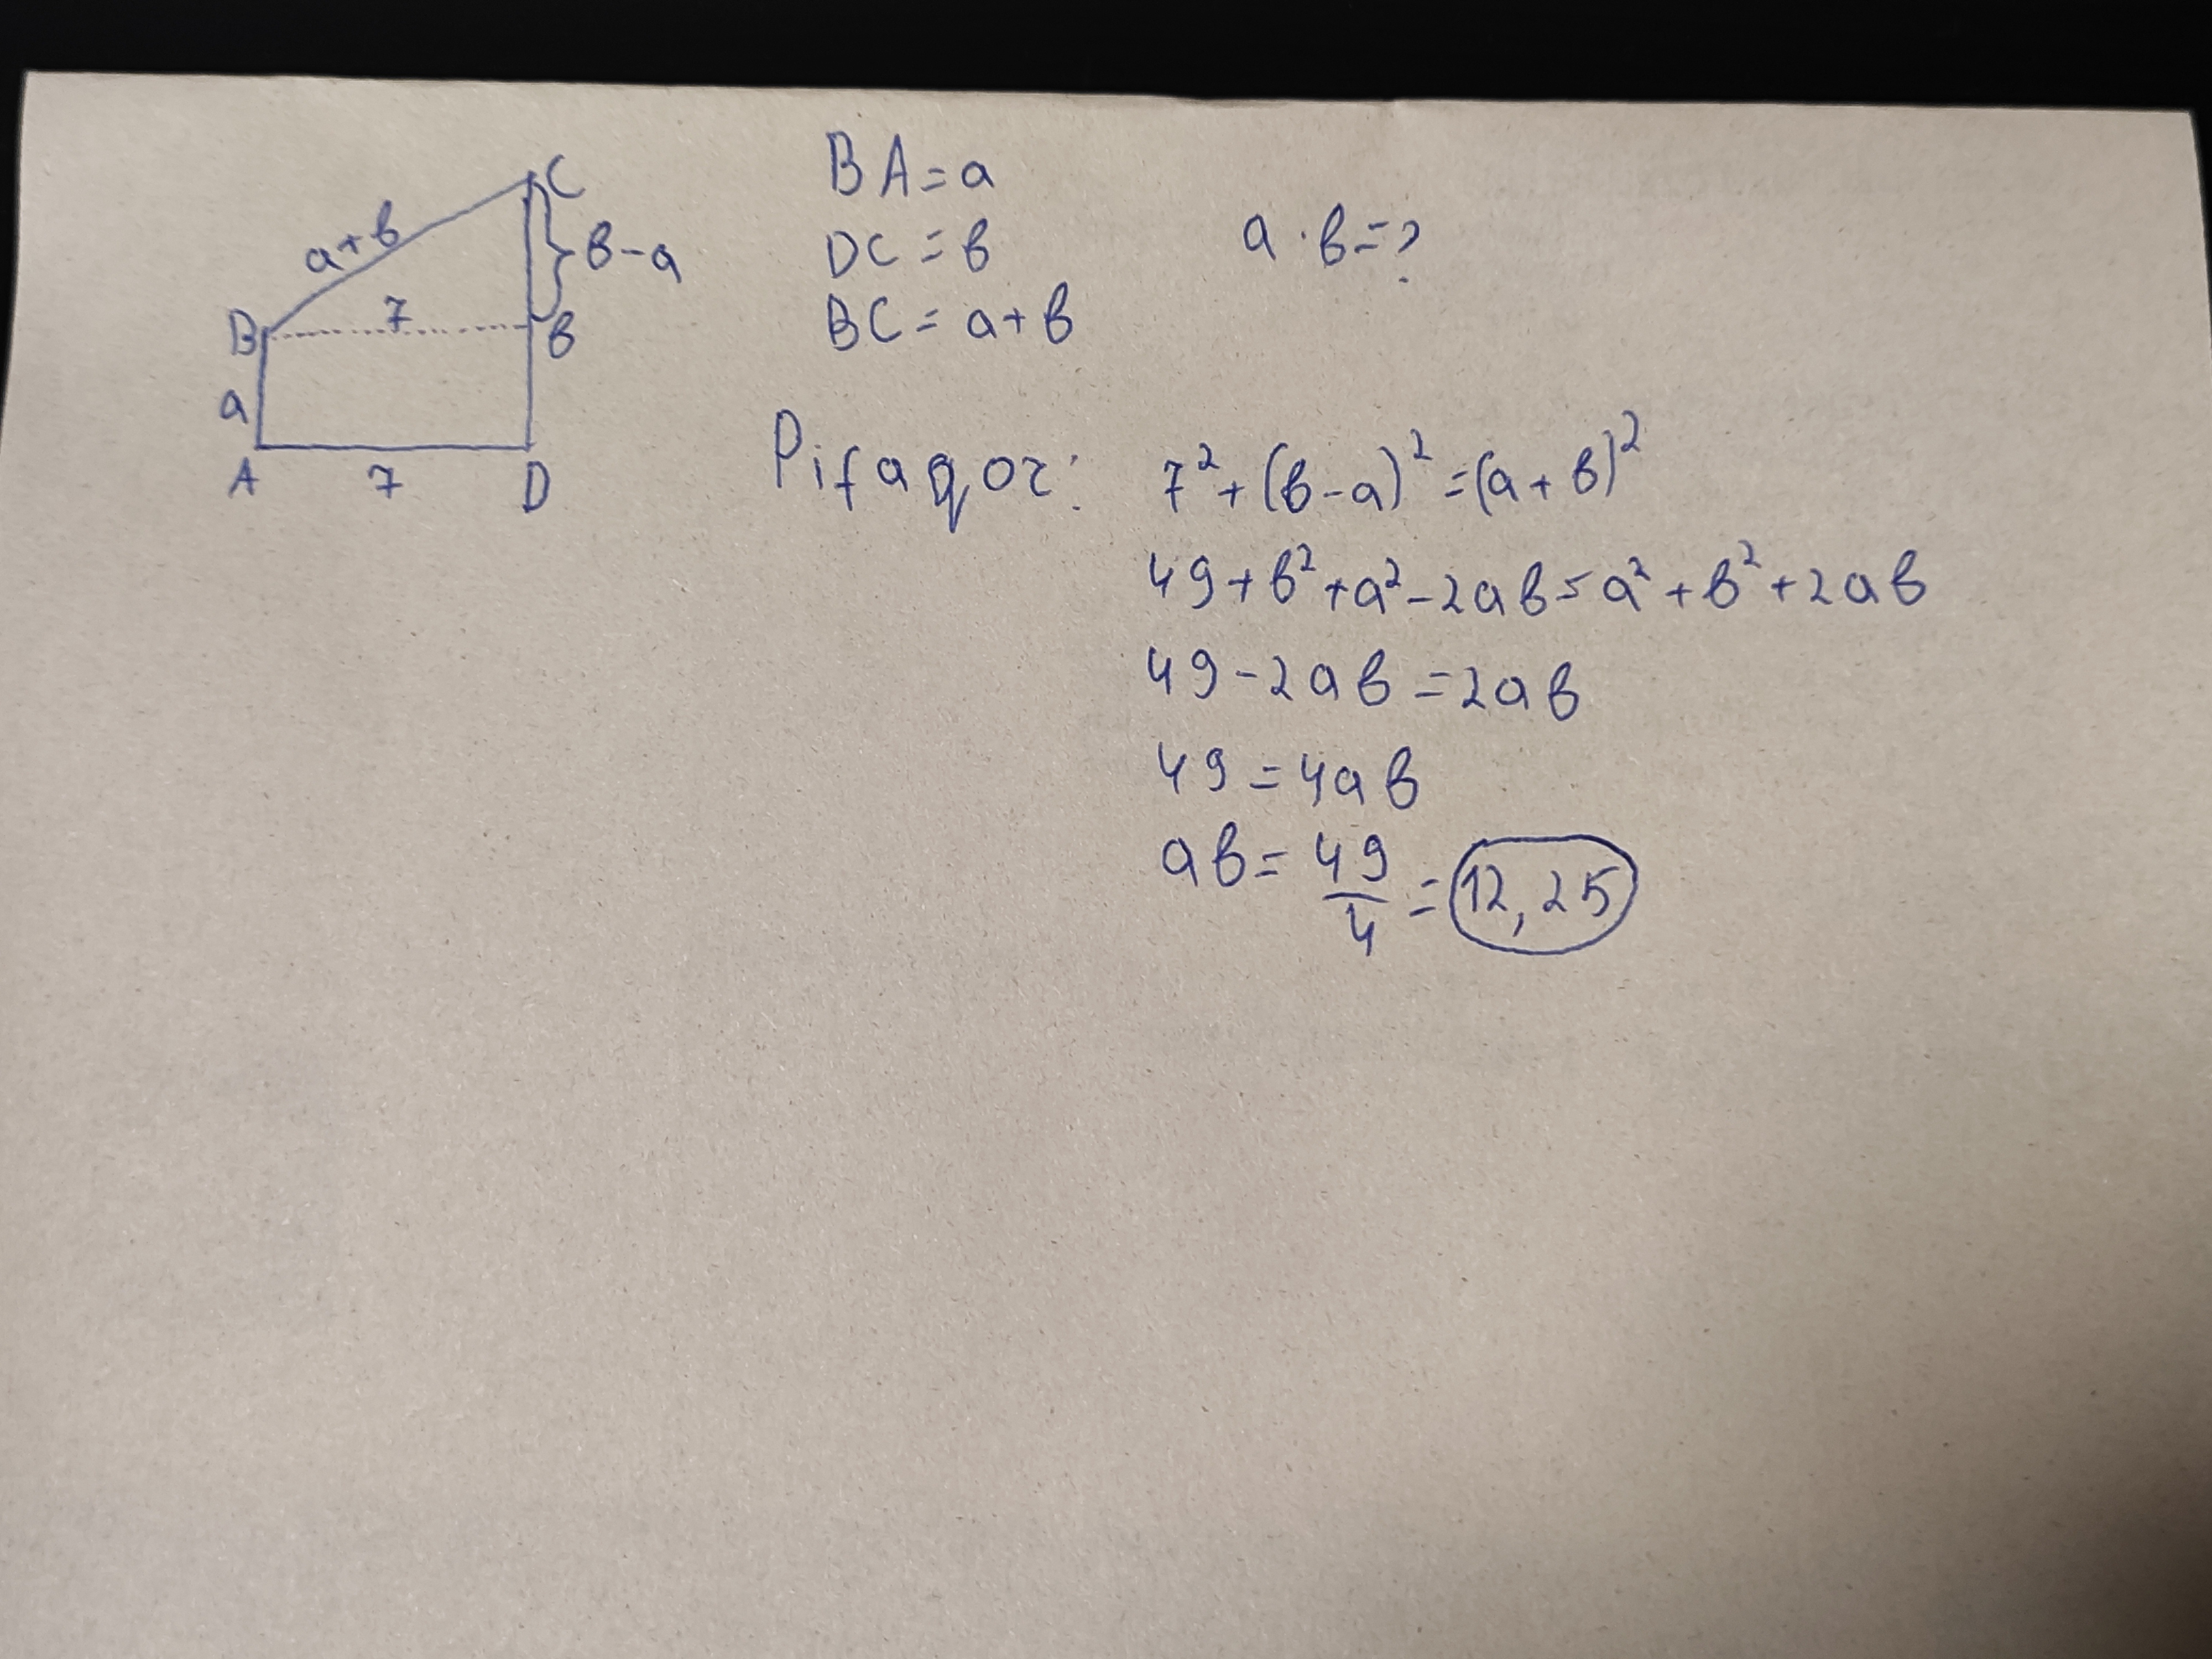 C
a+b
b-a
7
B
b
a
A
7
D
BA=a
DC=b
BC=a+b
a·b=?
Pifaqor: 7²+(b-a)²=(a+b)²
49+b²+a²-2ab=a²+b²+2ab
49-2ab=2ab
49=4ab
ab=49/4=12,25